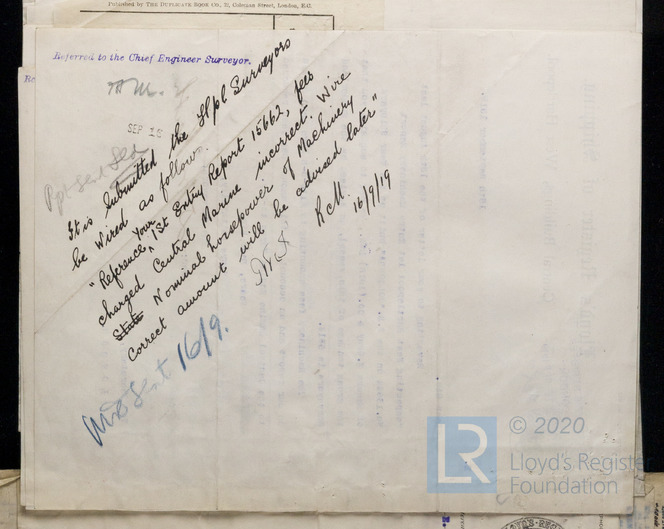 Published by THE DUPLICATE BOOK CO., 
London, E.C.
Referred to the Chief Engineer Surveyor.
SEP 18
It is submitted the Hpl Surveyors
be wired as follows.
"Reference your 1st Entry Report 15662, fees
charged Central Marine incorrect. Wire
State Nominal horsepower of Machinery
Correct amount will be advised later"
RCM.
16/9/19
Sent 16/9.
© 2020
LR
Lloyd's Register
Foundation